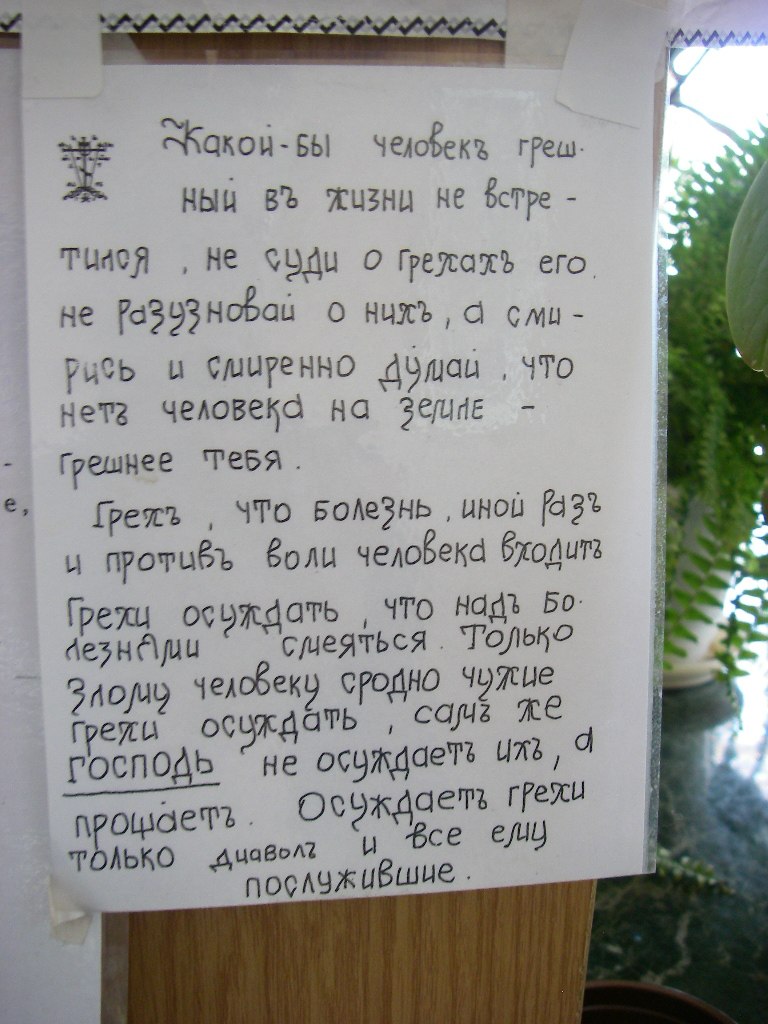 Какой-бы человекъ греш-
ный въ жизни не встре-
тился, не суди о грехахъ его,
не разузновай о нихъ, а сми-
рись и смиренно думай, что
нетъ человека на земле -
грешнее тебя.
Грехъ, что болезнь, иной разъ
и противъ воли человека входитъ
Грехи осуждать, что надъ бо-
лезнАми смеяться. Только
злому человеку сродно чужие
грехи осуждать, самъ же
ГОСПОДЬ не осуждаетъ ихъ, а
прощаетъ. Осуждаетъ грехи
только диаволъ и все ему
послужившие.
е,